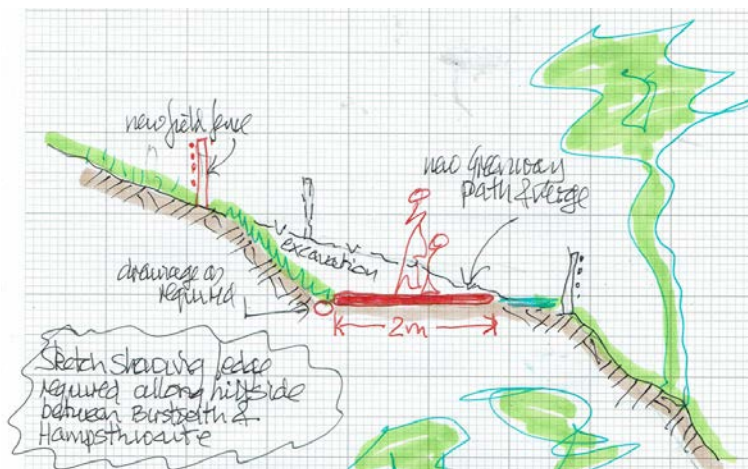 new field fence
new Greenway
path & verge
excavation
drainage as
required
2m
Sketch showing ledge
required allong hillside
between Birstwith &
Hampsthwaite